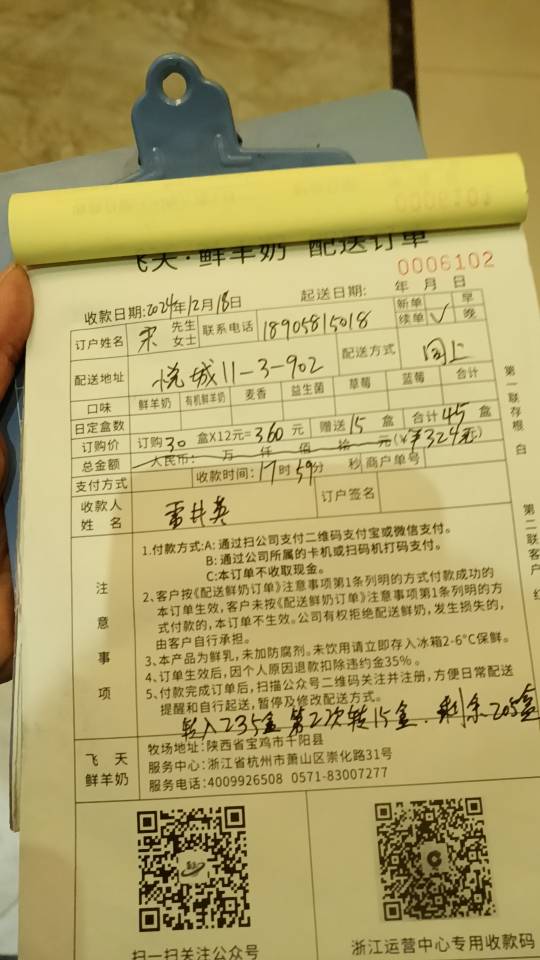 飞天·鲜羊奶 配送订单
0006102
收款日期:2024年12月18日 起送日期: 年 月 日
订户姓名 宋 先生 女士 联系电话 18905815018 新单 续单 √ 早 晚
配送地址 悦城11-3-902 配送方式 同上
口味 鲜羊奶 有机鲜羊奶 麦香 益生菌 草莓 蓝莓 合计
日定盒数
订购价 订购30盒X12元=360元 赠送15盒 合计45盒
总金额 人民币: 万 仟 佰 拾 元(¥ 324元)
支付方式 收款时间:17时59分 秒 商户单号
收款人姓名 雷井英 订户签名
注意事项
1.付款方式:A: 通过扫公司支付二维码支付宝或微信支付。
B: 通过公司所属的卡机或扫码机打码支付。
C:本订单不收取现金。
2、客户按《配送鲜奶订单》注意事项第1条列明的方式付款成功的
本订单生效,客户未按《配送鲜奶订单》注意事项第1条列明的方
式付款的,本订单不生效。公司有权拒绝配送鲜奶,发生损失的,
由客户自行承担。
3、本产品为鲜乳,未加防腐剂。未饮用请立即存入冰箱2-6°C保鲜。
4、订单生效后,因个人原因退款扣除违约金35%。
5、付款完成订单后,扫描公众号二维码关注并注册,方便日常配送
提醒和自行起送,暂停及修改配送方式。
转入235盒 第22次转15盒. 剩余205盒
飞天
鲜羊奶
牧场地址:陕西省宝鸡市千阳县
服务中心:浙江省杭州市萧山区崇化路31号
服务电话:4009926508 0571-83007277
扫一扫关注公众号
浙江运营中心专用收款码
第一联存根 白
第二联客户 红